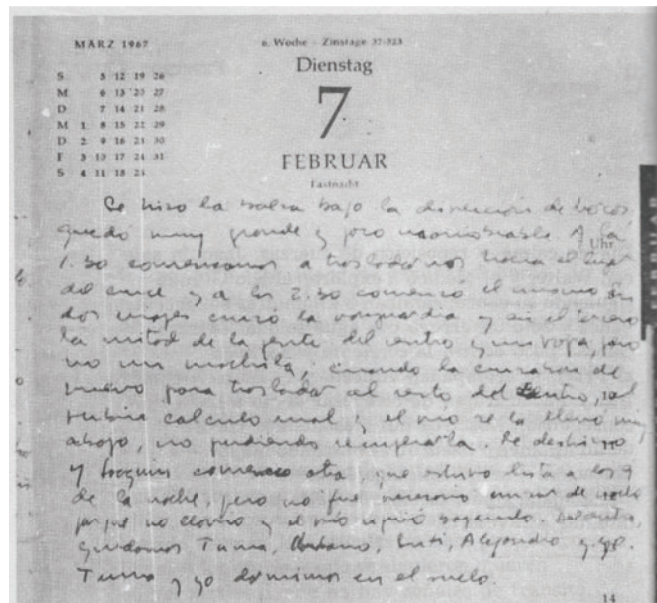 MÄRZ 1967
6. Woche – Zinstage 37-323
Dienstag
7
FEBRUAR
Fastnacht
S 5 12 19 26
M 6 13 20 27
D 7 14 21 28
M 1 8 15 22 29
D 2 9 16 23 30
F 3 10 17 24 31
S 4 11 18 25
Se hizo la balsa bajo la dirección de Marcos,
quedó muy grande y poco maniobrable. A la
Uhr
1.30 comenzamos a trasladarnos hacia el lugar
del cruce y a las 2.30 comenzó el mismo. En
dos viajes cruzó la vanguardia y en el tercero
la mitad de la gente del centro y mi ropa, pero
no mi mochila; cuando la cruzaban de
nuevo para trasladar el resto del centro,
Rubio calculó mal y el río se la llevó muy
abajo, no pudiendo recuperarla. Se deshizo
y Joaquín comenzó otra, que estuvo lista a las 9
de la noche, pero no fue necesario cruzar de noche
porque no llovió y el río siguió bajando. Del centro,
quedamos Tuma, Urbano, Inti, Alejandro y yo.
Tuma y yo dormimos en el suelo.
14
FEBRUAR